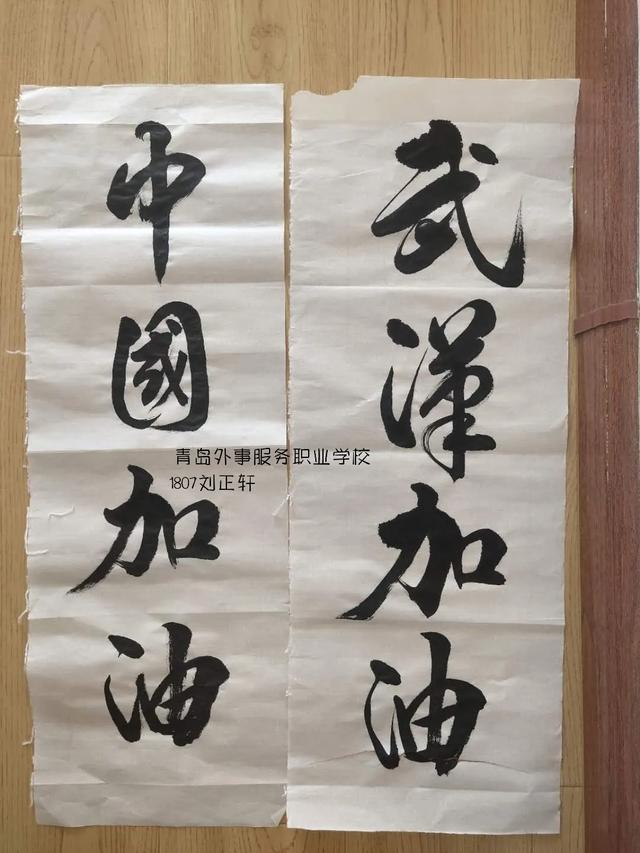 武漢加油
中國加油
青岛外事服务职业学校
1807刘正轩